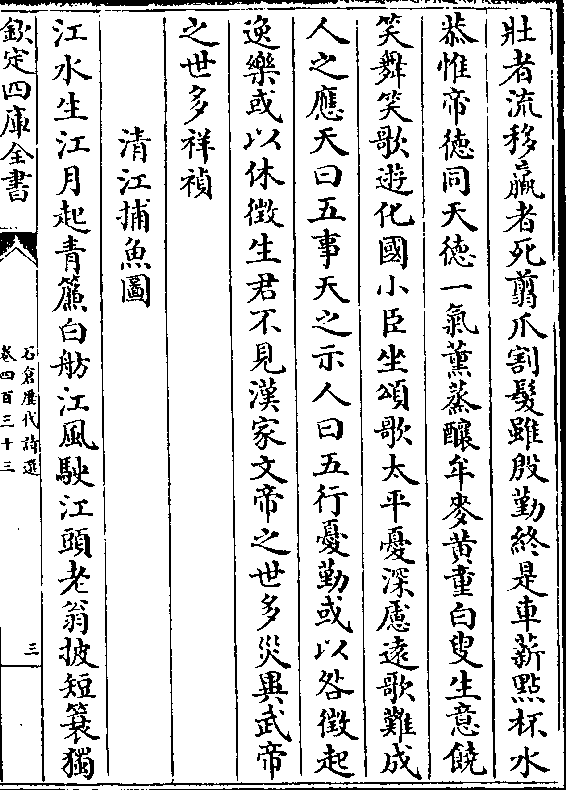 壯者流移羸者死翦爪割髮雖殷勤終是車薪點杯水
恭惟帝徳同天徳一氣薫蒸釀牟麥黄童白叟生意饒
笑舞笑歌遊化國小臣坐頌歌太平憂深慮遠歌難成
人之應天曰五事天之示人曰五行憂勤或以咎徴起
逸樂或以休徴生君不見漢家文帝之世多災異武帝
之世多祥禎
清江捕魚圖
江水生江月起青簾白舫江風駛江頭老翁披短簑獨
欽定四庫全書
石倉歴代詩選
卷四百三十三
三